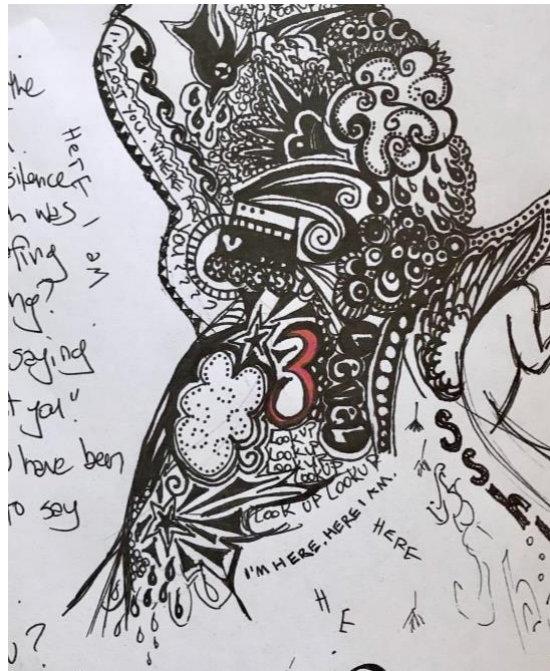 the
silence
was
ng?
saying
t you"
have been
to say
?
HERE I AM
I'VE LOST YOU. WHERE R
YOU?
3
LEVEL
LOOK UP
LOOK UP
LOOK UP
LOOK UP
LOOK UP LOOK UP
I'M HERE. HERE I AM.
HERE
H
E